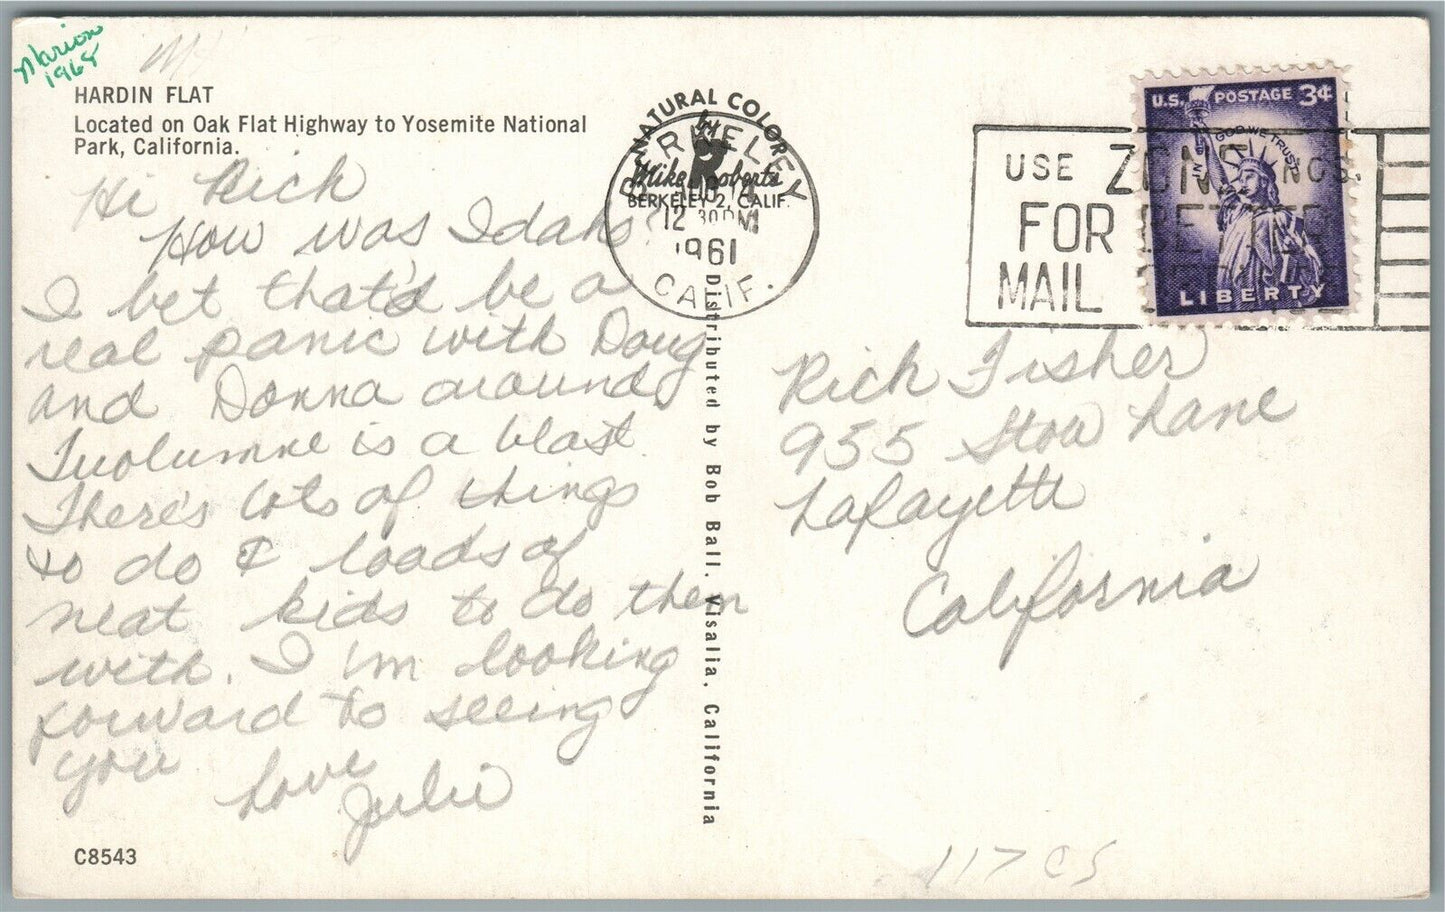 Marion
1968
HARDIN FLAT
Located on Oak Flat Highway to Yosemite National
Park, California.
Hi Rich
How was Idaho?
I bet that'd be a
real panic with Doug
and Donna around.
Tuolumne is a blast.
There's lots of things
to do & loads of
neat kids to do them
with. I'm looking
forward to seeing
you
Love
Julie
C8543
NATURAL COLOR
by
Mike Roberts
BERKELEY 2, CALIF.
BERKELEY
12 30 PM
1961
CALIF.
Distributed by Bob Ball, Visalia, California
U.S. POSTAGE 3¢
IN GOD WE TRUST
LIBERTY
USE ZONE NOS.
FOR BETTER
MAIL
Rich Fisher
955 Stow Lane
Lafayette
California
117 CS